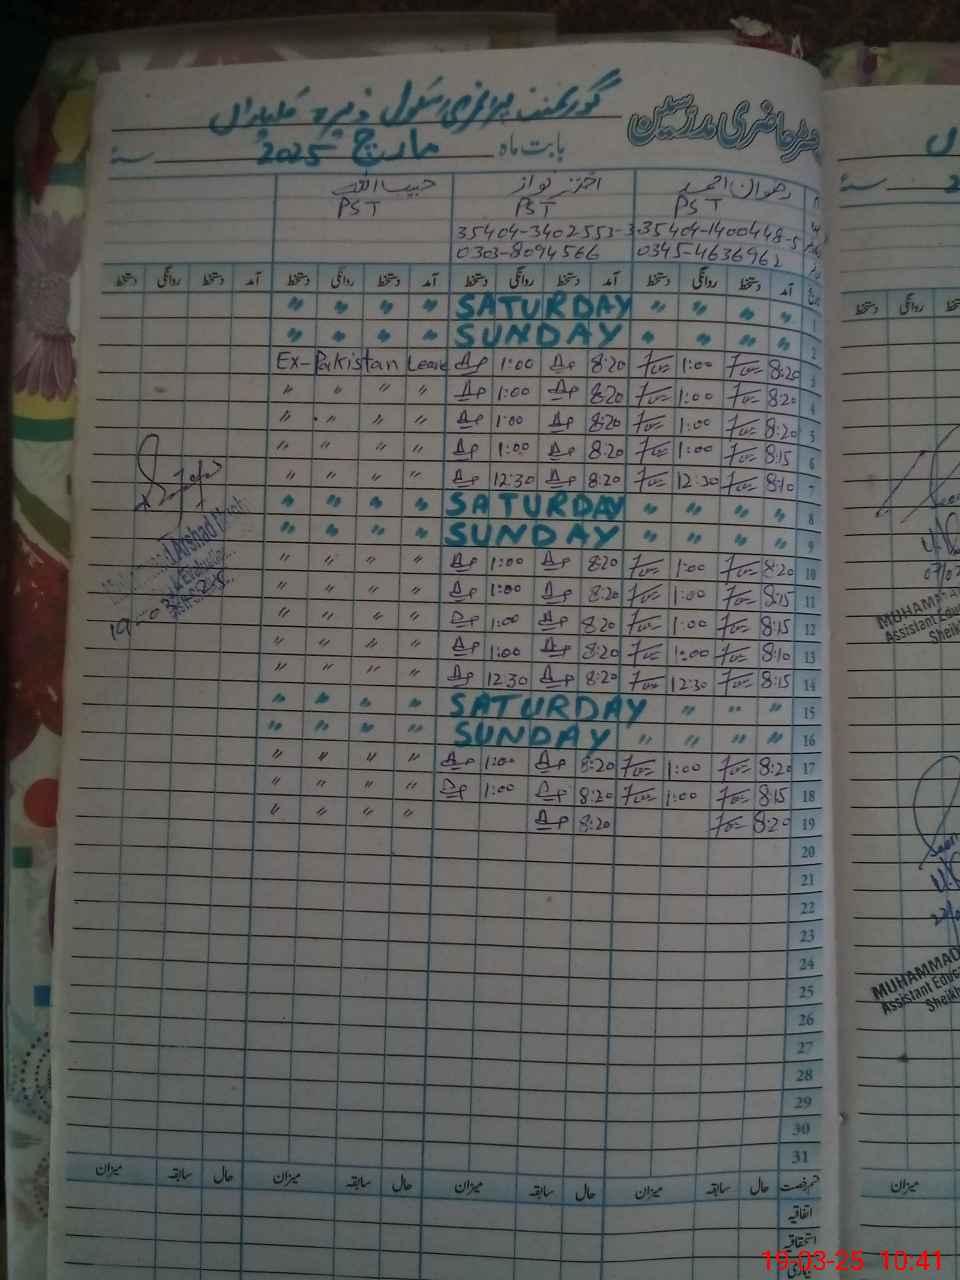 رجسٹر حاضری مدرسین
گورنمنٹ پرائمری سکول ڈیرہ ملیاں
بابت ماہ مارچ 2025 سنہ
رضوان احمد اختر نواز حبیب اللہ
PST PST PST
35404-1400448-5 35404-3402553-3
0345-4636962 0303-8094566
آمد دستخط روانگی دستخط آمد دستخط روانگی دستخط آمد دستخط روانگی دستخط آمد دستخط روانگی دستخط
1 " " " " SATURDAY " " " "
2 " " " " SUNDAY " " " "
3 8:20 1:00 8:20 1:00 Ex-Pakistan Leave
4 8:20 1:00 8:20 1:00 " " " "
5 8:20 1:00 8:20 1:00 " " " "
6 8:15 1:00 8:20 1:00 " " " "
7 8:10 12:30 8:20 12:30 " " " "
8 " " " " SATURDAY " " " "
9 " " " " SUNDAY " " " "
10 8:20 1:00 8:20 1:00 " " " "
11 8:15 1:00 8:20 1:00 " " " "
12 8:15 1:00 8:20 1:00 " " " "
13 8:10 1:00 8:20 1:00 " " " "
14 8:15 12:30 8:20 12:30 " " " "
15 " " " SATURDAY " " " "
16 " " " " SUNDAY " " " "
17 8:20 1:00 8:20 1:00 " " " "
18 8:15 1:00 8:20 1:00 " " " "
19 8:20 8:20 " " " "
20
21
22
23
24
25
26
27
28
29
30
31
قسم رخصت حال سابقہ میزان حال سابقہ میزان حال سابقہ میزان حال سابقہ میزان
اتفاقیہ
استحقاقیہ
بیماری
Arshad
MUHAMMAD
Assistant Educa
Sheikh
MUHAMMAD
Assistant Educa
Sheikh
روانگی دستخط
میزان
19-03-25 10:41